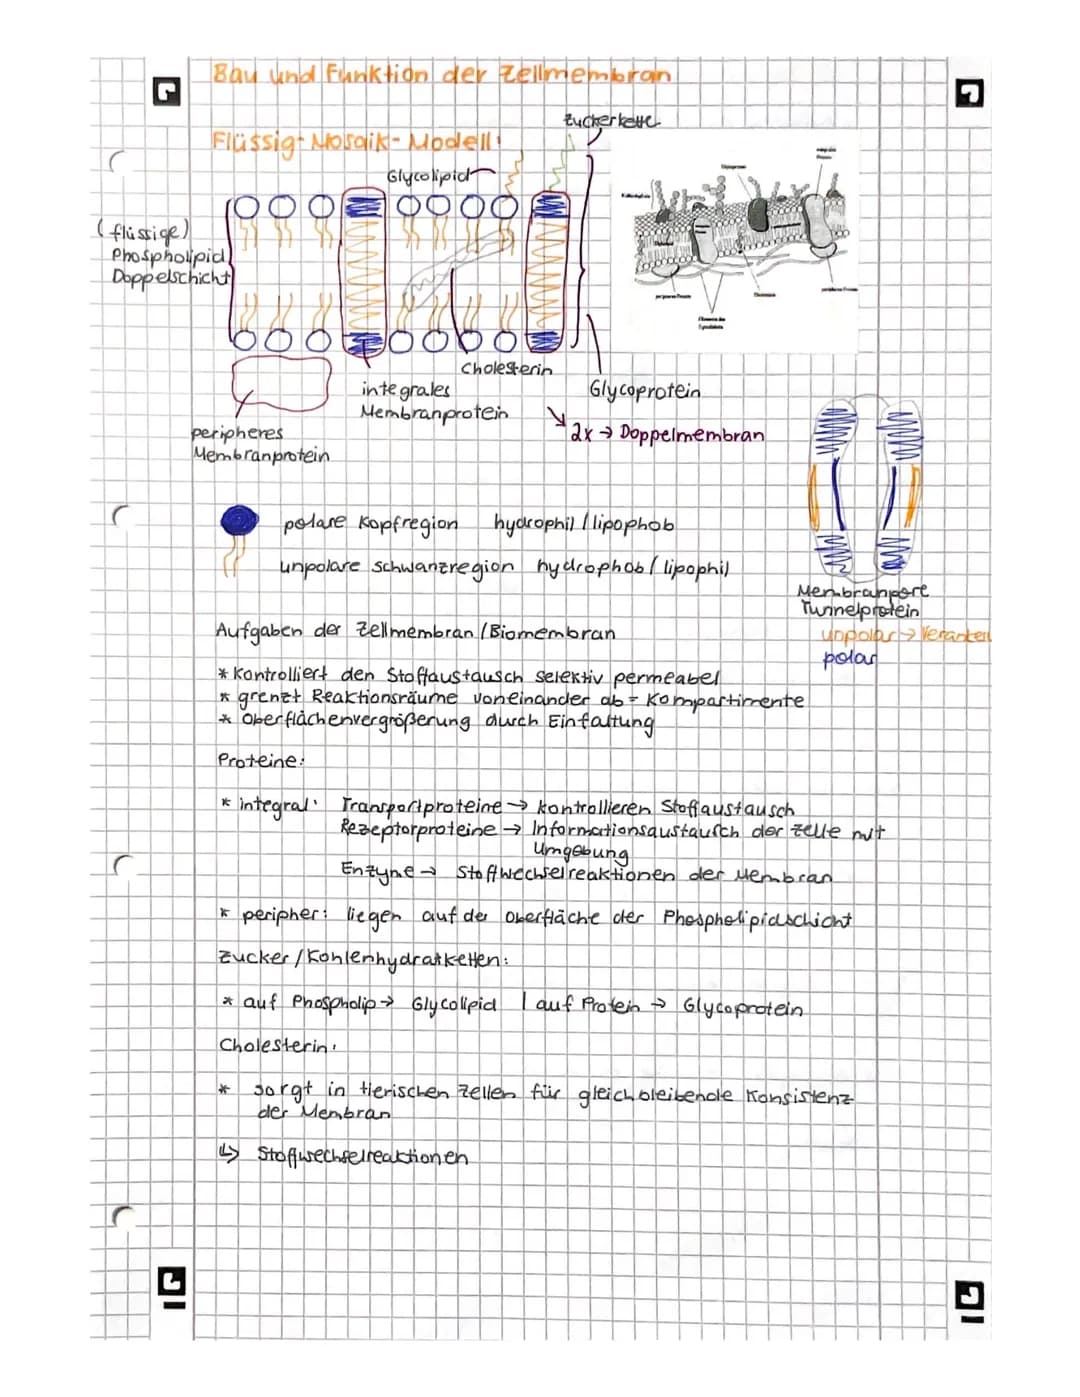 Bau und Funktion der Zellmembran
Flüssig-Mosaik-Modell:
Zuckerkette
Glycolipid
(flüssige)
Phospholipid
Doppelschicht
Cholesterin
integrales
Membranprotein
Glycoprotein
↘ 2x → Doppelmembran
peripheres
Membranprotein
polare Kopfregion hydrophil / lipophob
unpolare Schwanzregion hydrophob / lipophil
Membranpore
Tunnelprotein
unpolar → Verankern
polar
Aufgaben der Zellmembran / Biomembran
* Kontrolliert den Stoffaustausch selektiv permeabel
* grenzt Reaktionsräume voneinander ab = Kompartimente
* Oberflächenvergrößerung durch Einfaltung
Proteine:
* integral: Transportproteine → kontrollieren Stoffaustausch
Rezeptorproteine → Informationsaustausch der Zelle mit
Umgebung
Enzyme → Stoffwechselreaktionen der Membran
* peripher: liegen auf der Oberfläche der Phospholipidschicht
Zucker / Kohlenhydratketten:
* auf Phospholip → Glycolipid | auf Protein → Glycoprotein
Cholesterin:
* sorgt in tierischen Zellen für gleichbleibende Konsistenz
der Membran
↳ Stoffwechselreaktionen